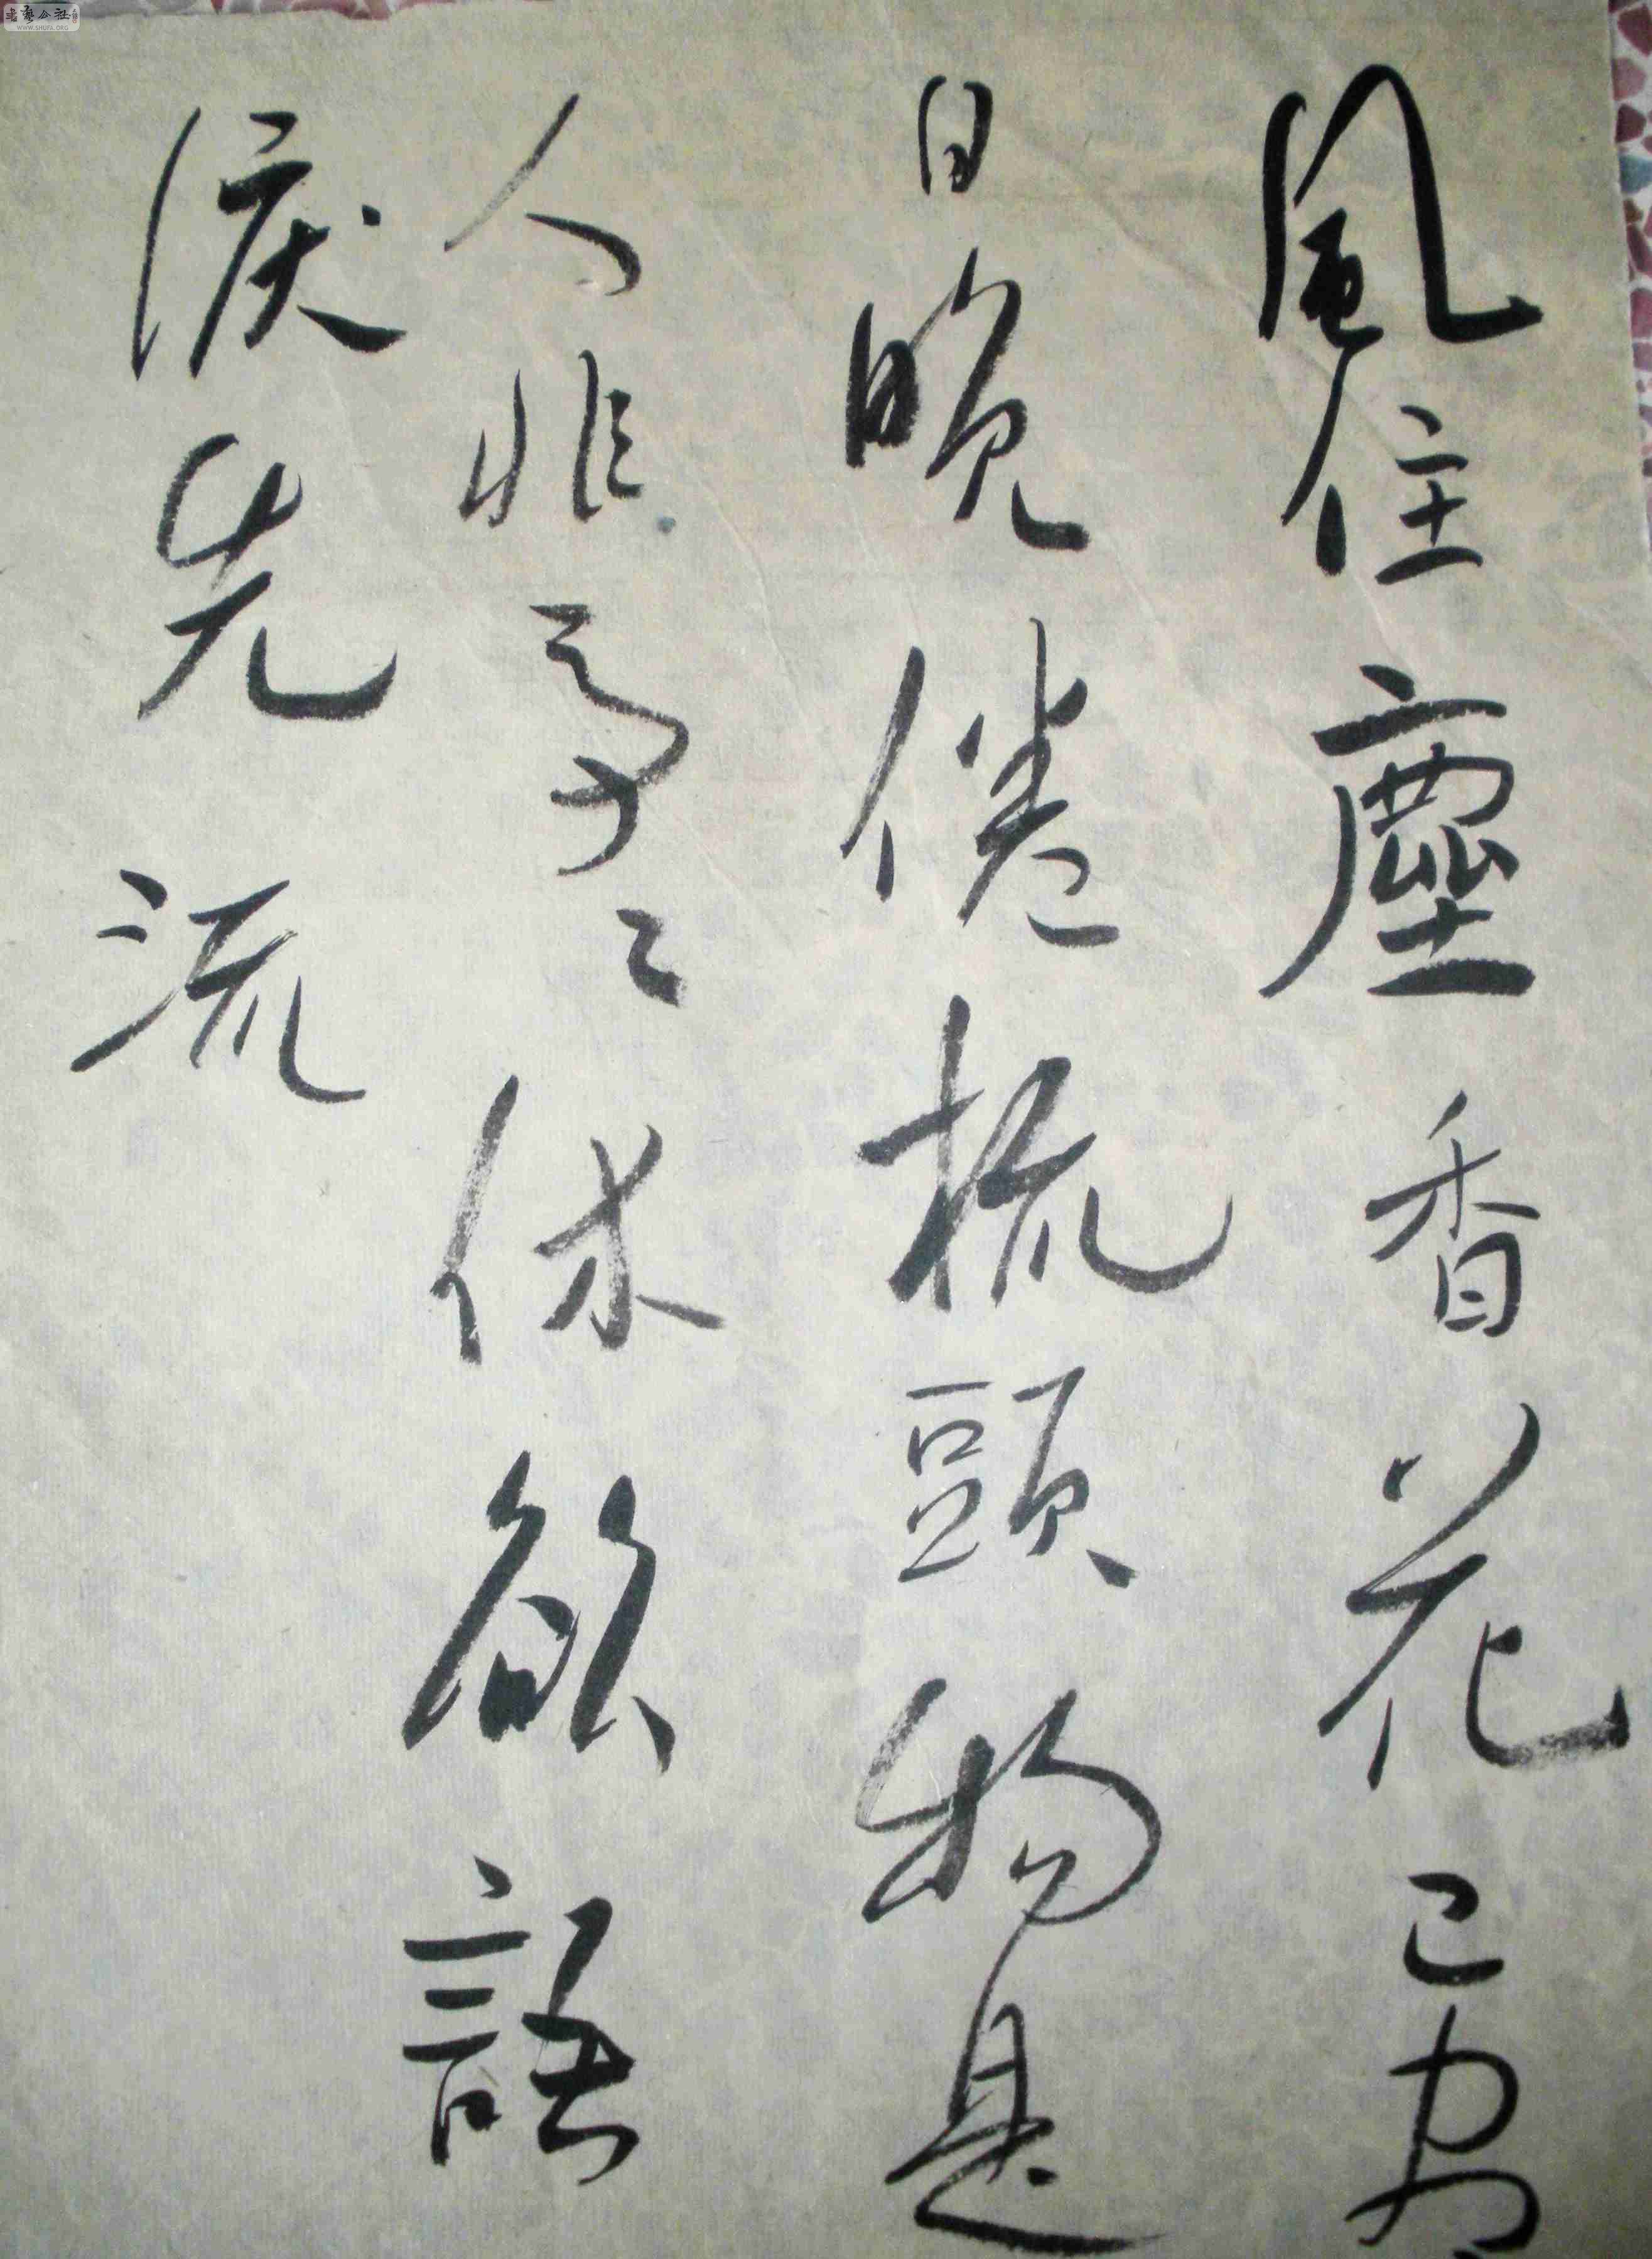 風住塵香花已尽
日晚倦梳頭物是
人非事〻休欲語
淚先流
WWW.SHUFA.ORG